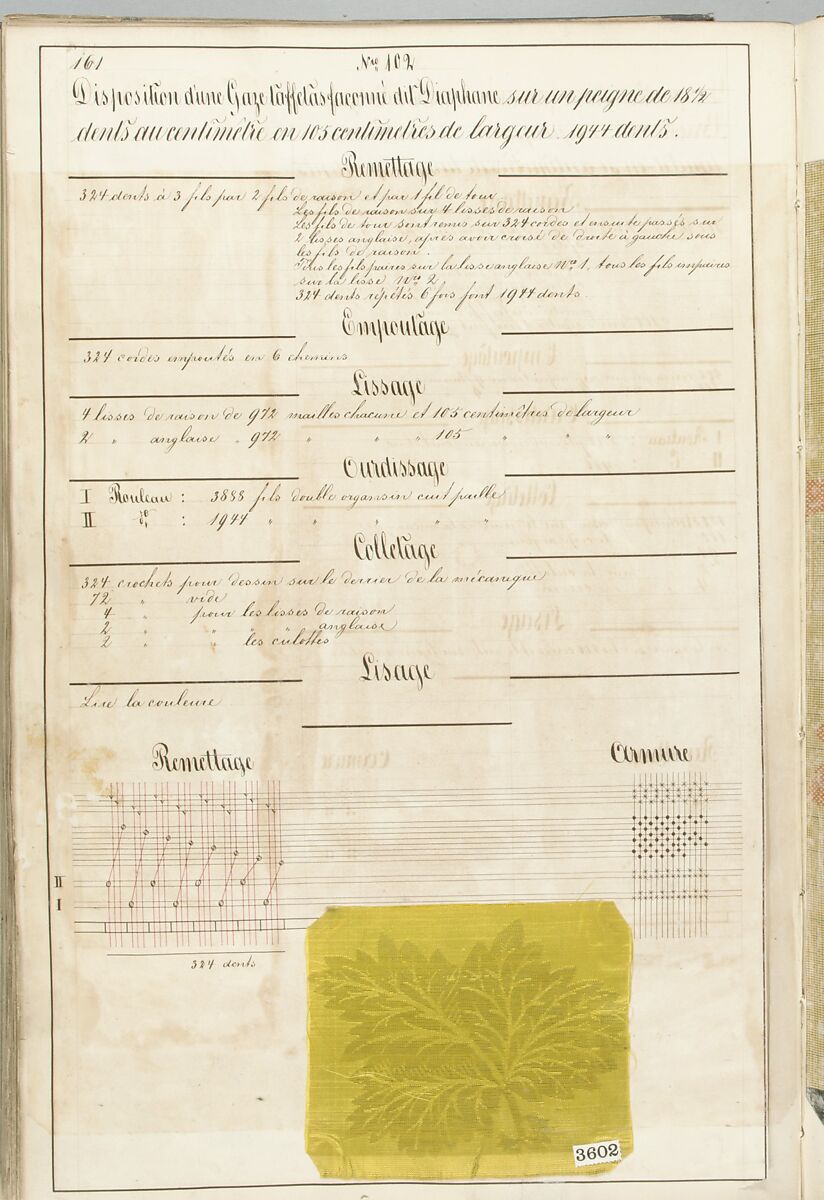 161
Nro 102
Disposition d'une Gaze taffetas façonné dit Diaphane sur un peigne de 18 1/2
dents au centimètre en 105 centimètres de largeur. 1944 dents.
Remettage
324 dents à 3 fils par 2 fils de raison et par 1 fil de tour
Les fils de raison sur 4 lisses de raison
Les fils de tour sont remis sur 324 cordes et ensuite passés sur
2 lisses anglaise, après avoir croisé de droite à gauche sous
les fils de raison.
Tous les fils paires sur la lisse anglaise Nro 1, tous les fils impaires
sur la lisse Nro 2
324 dents répétés 6 fois font 1944 dents.
Empoutage
324 cordes empoutés en 6 chemins
Lissage
4 lisses de raison de 972 mailles chacune et 105 centimètres de largeur
2 " anglaise " 972 " " " 105 " " "
Ourdissage
I Rouleau : 3888 fils double organsin cuit paille
II do : 1944 " " " " "
Colletage
324 crochets pour dessin sur le derrier de la mécanique
72 " vide
4 " pour les lisses de raison
2 " " " " anglaise
2 " " les culottes
Lisage
Lire la couleure
Remettage
Armure
II
I
324 dents
3602